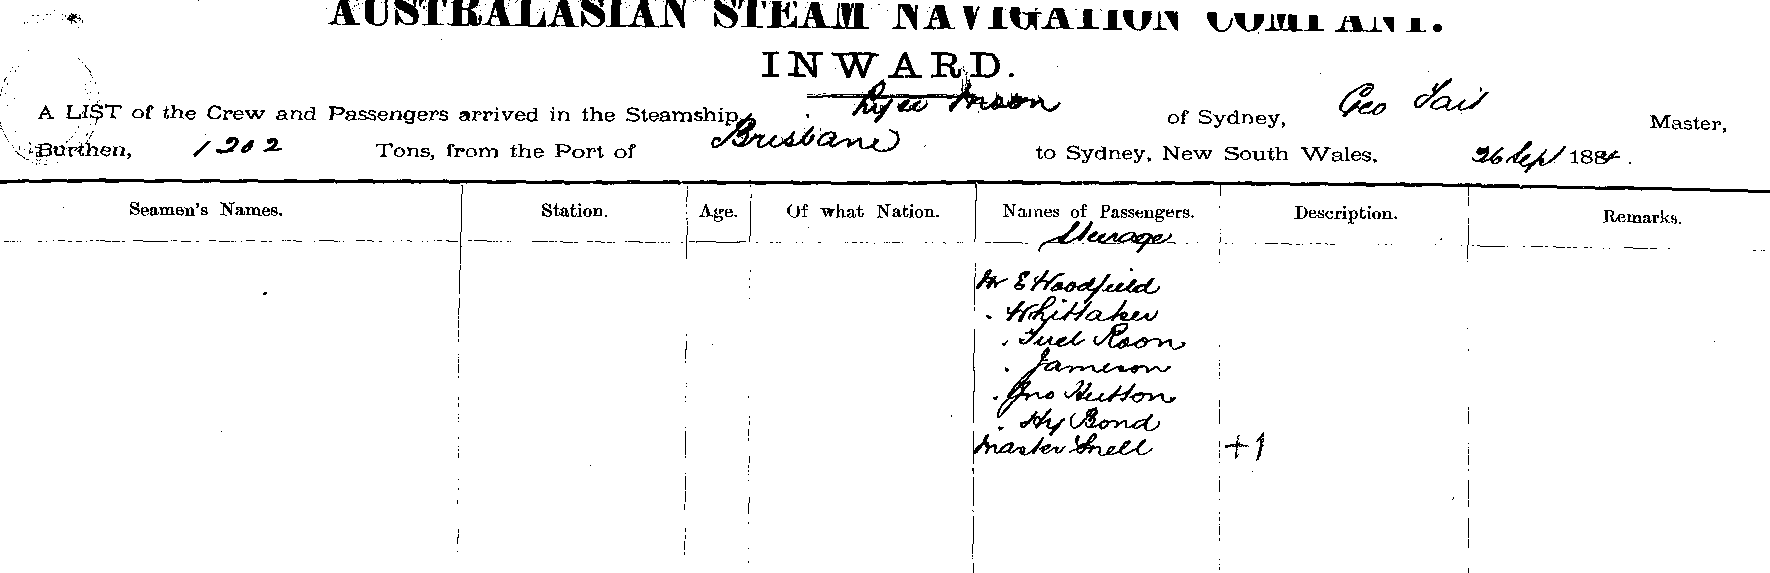 AUSTRALASIAN STEAM NAVIGATION COMPANY.
INWARD.
A LIST of the Crew and Passengers arrived in the Steamship, Lyee Moon of Sydney, Geo Tait Master,
Burthen, 1202 Tons, from the Port of Brisbane to Sydney, New South Wales, 26 Sep 1884.
Seamen's Names. Station. Age. Of what Nation. Names of Passengers. Description. Remarks.
Steerage
Mr E Woodfield
. Whittaker
. Fred Roon
. Jameson
. Jno Hutton
. Hy Bond
Master Snell +1